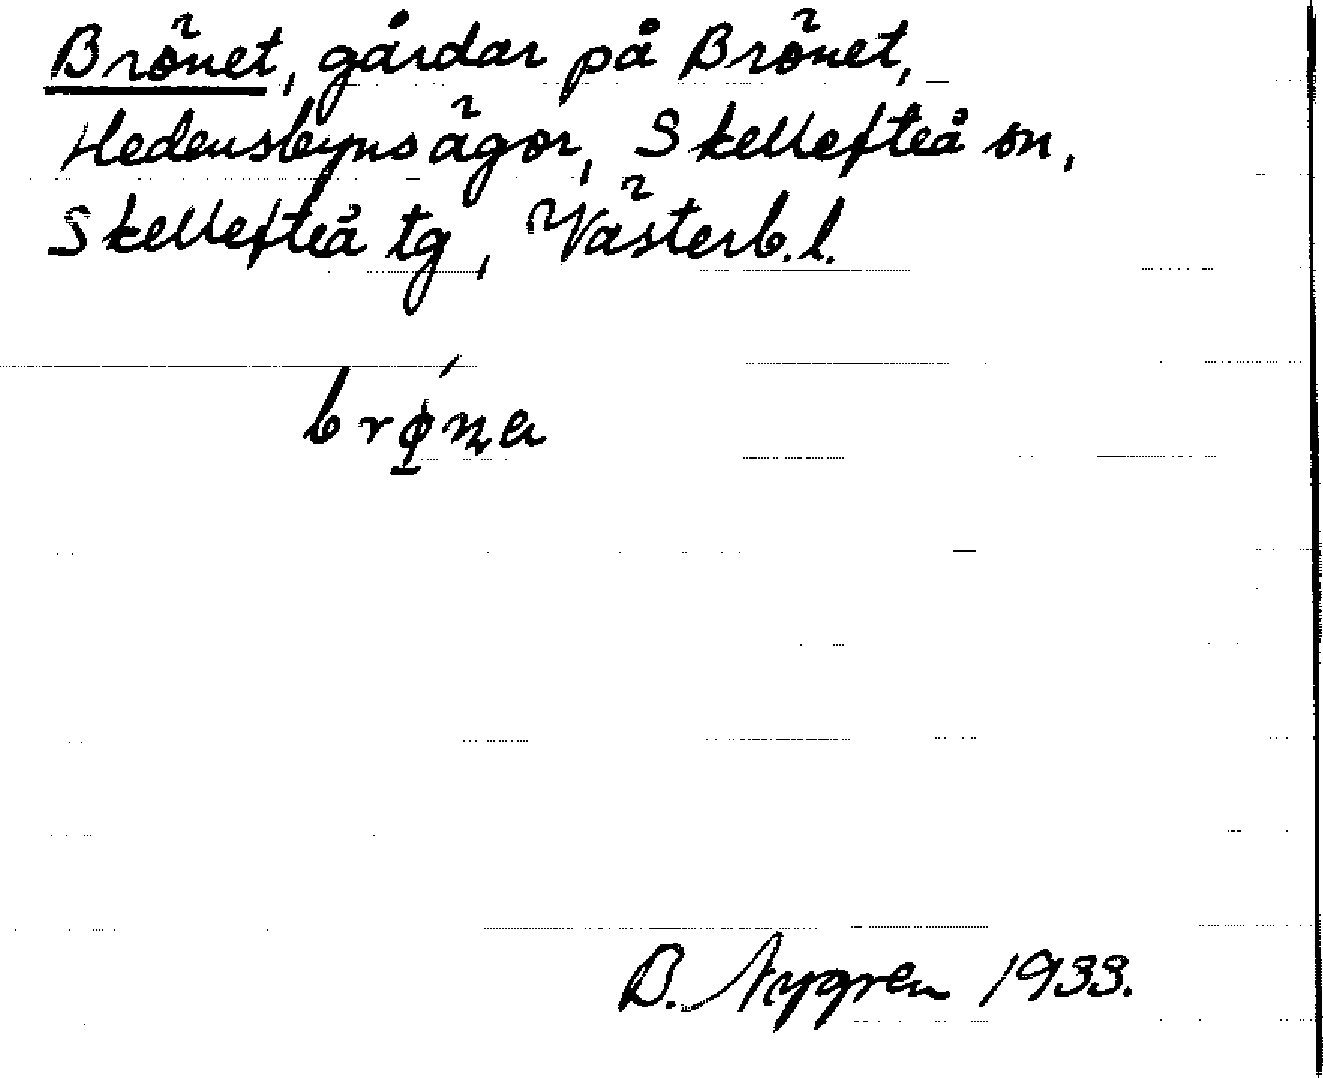 Brönet, gårdar på Brönet,
Hedensbyns ägor, Skellefteå sn,
Skellefteå tg, Västerb. l.
brø̱´na
B. Nygren 1933.